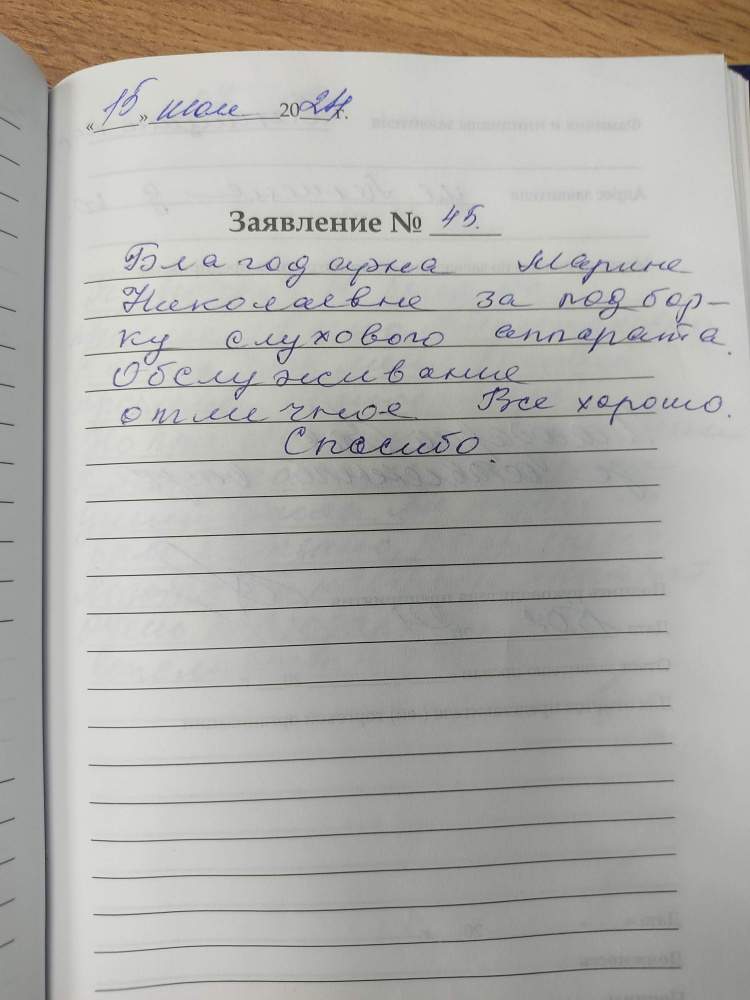 «15» июля 2024 г.
Заявление № 45.
Благодарна Марине
Николаевне за подбор-
ку слухового аппарата.
Обслуживание
отличное. Все хорошо.
Спасибо.